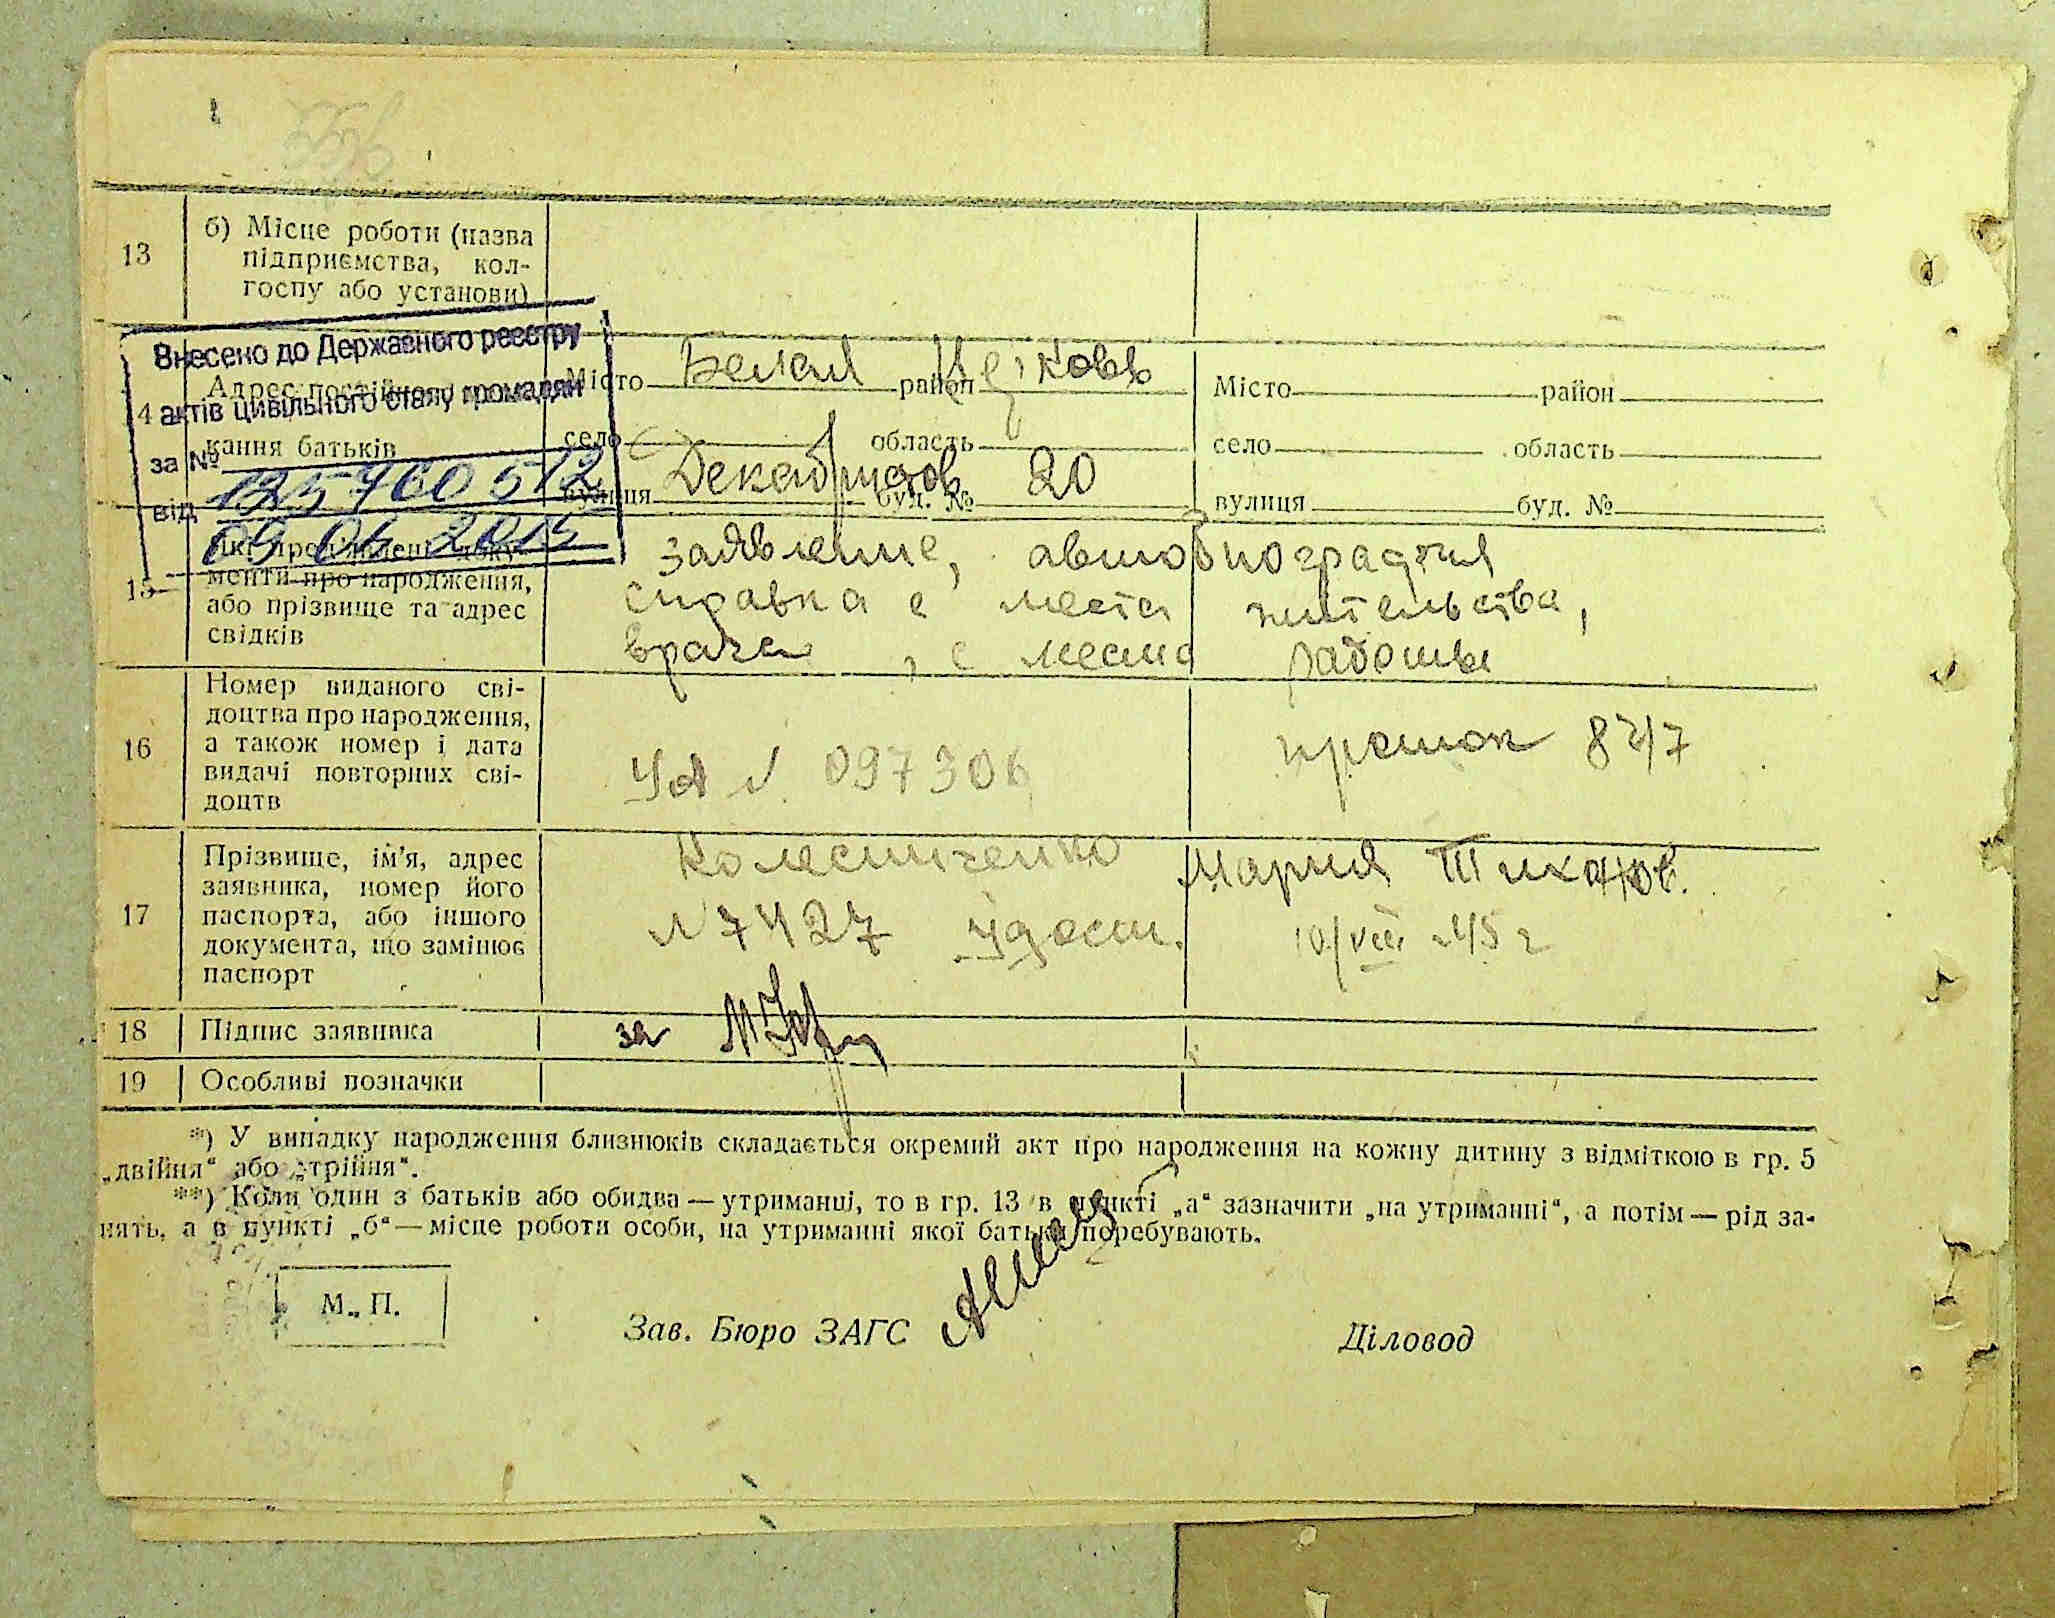 13
б) Місце роботи (назва
підприємства, кол-
госпу або установи)
Внесено до Державного реєстру
актів цивільного стану громадян
за №
125760512
від 09 06 2015
14
Адрес постійного
кання батьків
Місто Белая район Церковь
село область
вулиця Декабристов буд. № 20
Місто район
село область
вулиця буд. №
15
менти про народження,
або прізвище та адрес
свідків
заявление, автобиография
справка с места жительства,
врача, с места работы
16
Номер виданого сві-
доцтва про народження,
а також номер і дата
видачі повторних сві-
доцтв
УА № 097306
17
Прізвище, ім'я, адрес
заявника, номер його
паспорта, або іншого
документа, що замінює
паспорт
Колесниченко Мария Тихонов.
№ 7427 удост. 10/VIII 45 г
18
Підпис заявника
за
19
Особливі позначки
*) У випадку народження близнюків складається окремий акт про народження на кожну дитину з відміткою в гр. 5
„двійня“ або „трійня“.
**) Коли один з батьків або обидва — утриманці, то в гр. 13 в пункті „а“ зазначити „на утриманні“, а потім — рід за-
нять, а в пункті „б“ — місце роботи особи, на утриманні якої батьки поребувають.
М. П.
Зав. Бюро ЗАГС
Діловод